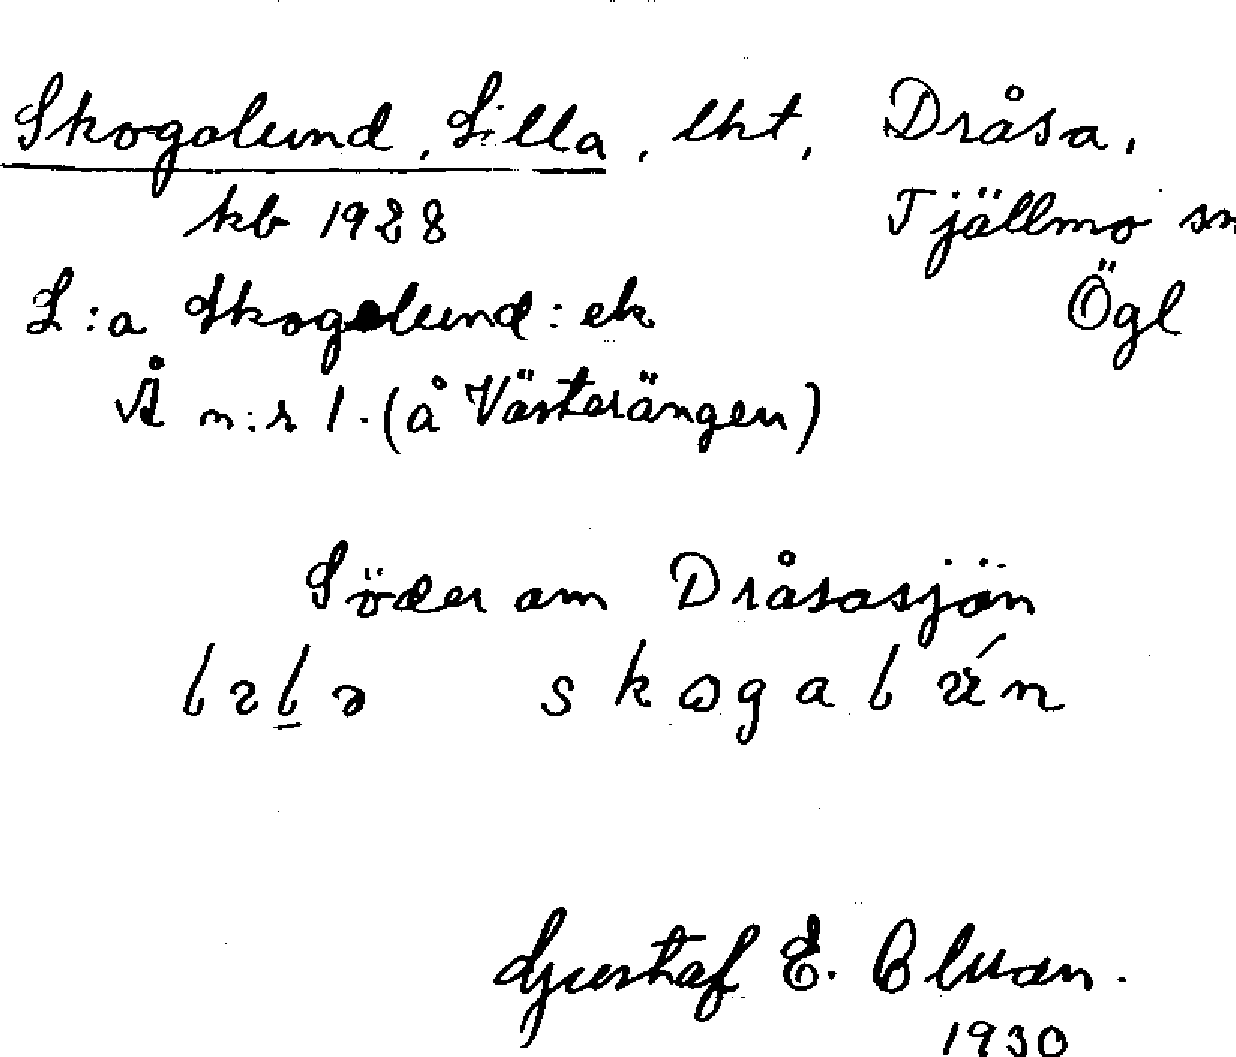 Skogalund, Lilla, lht, Dråsa,
kb 1928 Tjällmo sn
L:a Skogalund: ek Ögl
Å n:r 1. (å Västerängen)
Söder om Dråsasjön
Gustaf E. Bluan.
1930